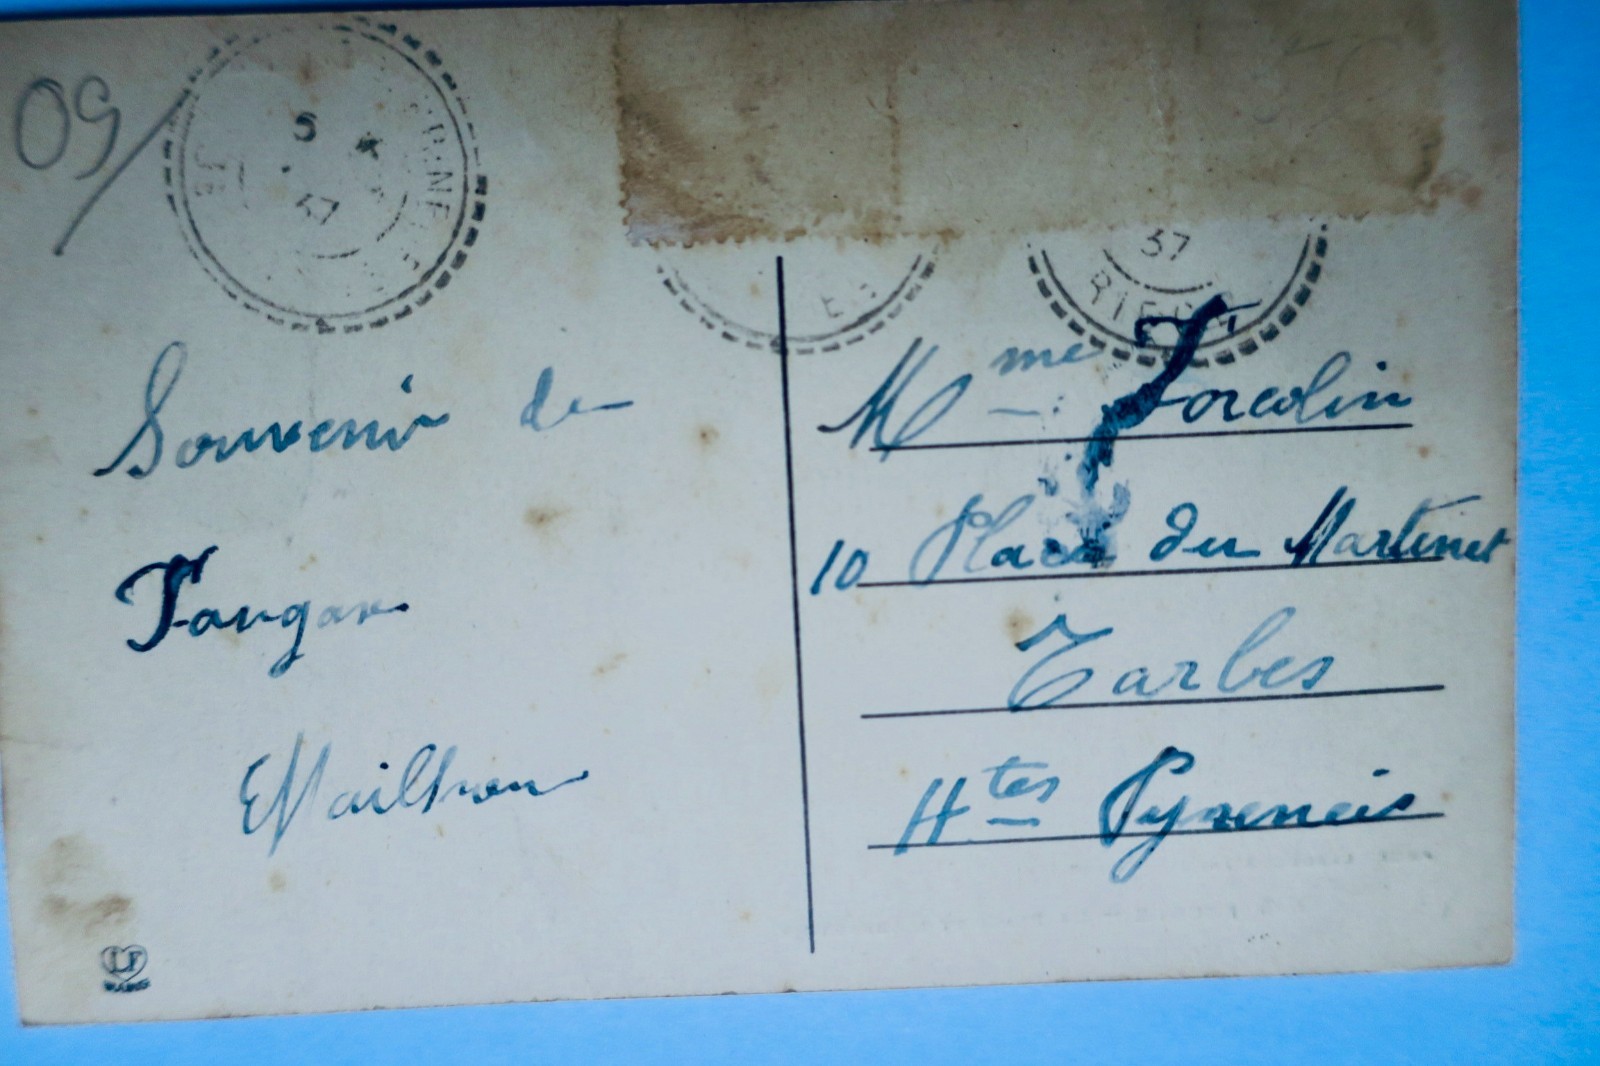 09/
5
37
37
Souvenir de
Fougax
EMailhon
Mme Forcolin
10 Place du Martinet
Tarbes
Htes Pyreneis
LF
PARIS